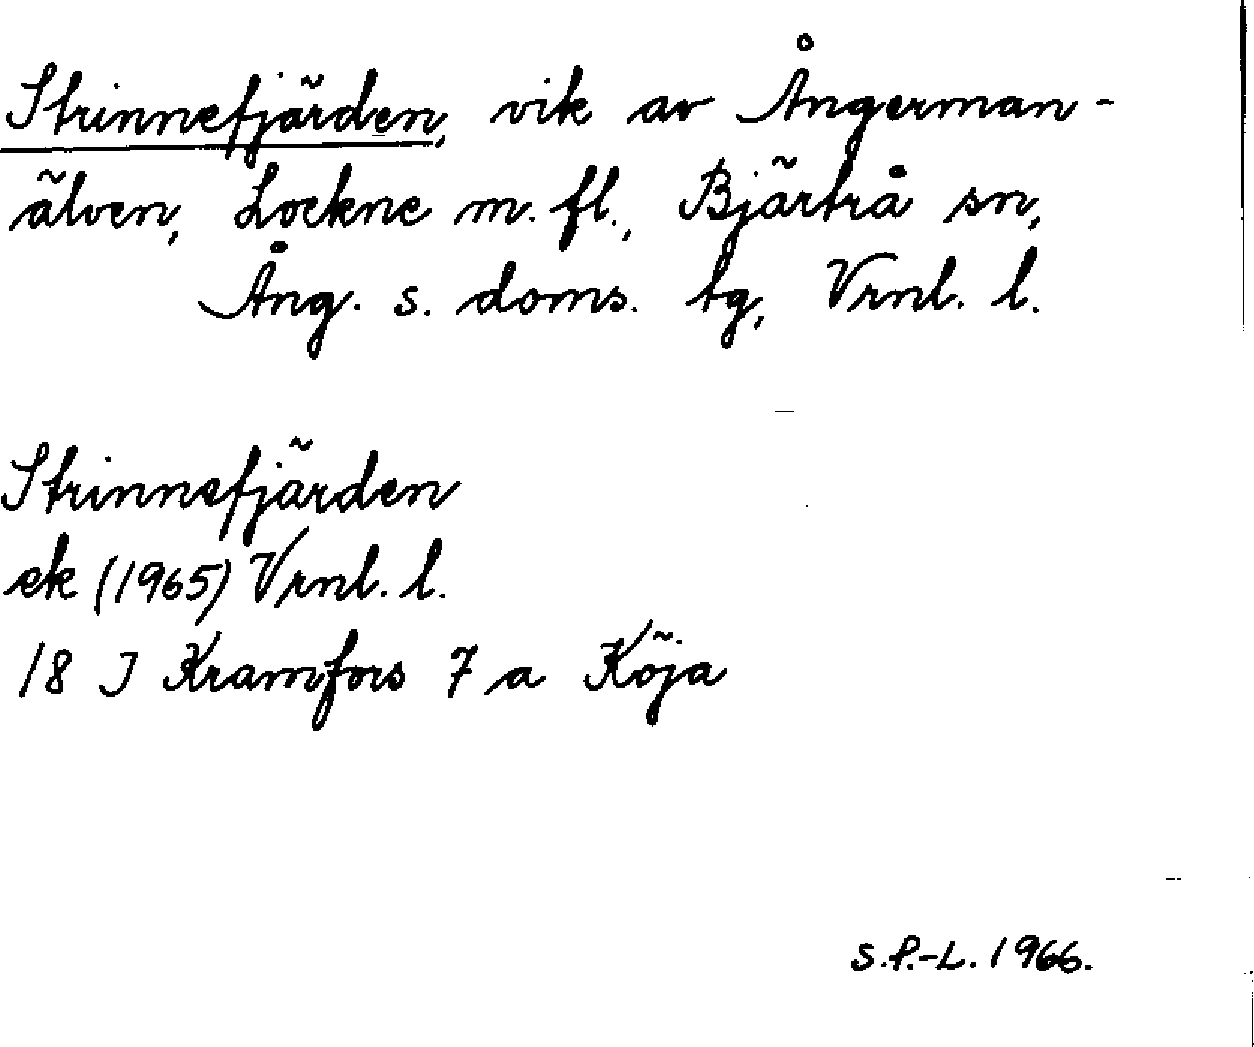 Strinnefjärden, vik av Ångerman-
älven, Lockne m. fl., Bjärtrå sn,
Ång. s. doms. tg, Vrnl. l.
Strinnefjärden
ek (1965) Vrnl. l.
18 J Kramfors 7 a Köja
S.P.-L. 1966.